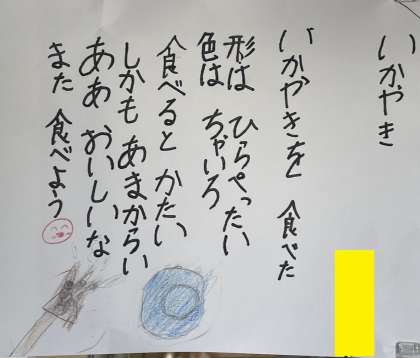 いかやき
いかやきを 食べた
形は ひらぺったい
色は ちゃいろ
食べると かたい
しかも あまからい
ああ おいしいな
また 食べよう